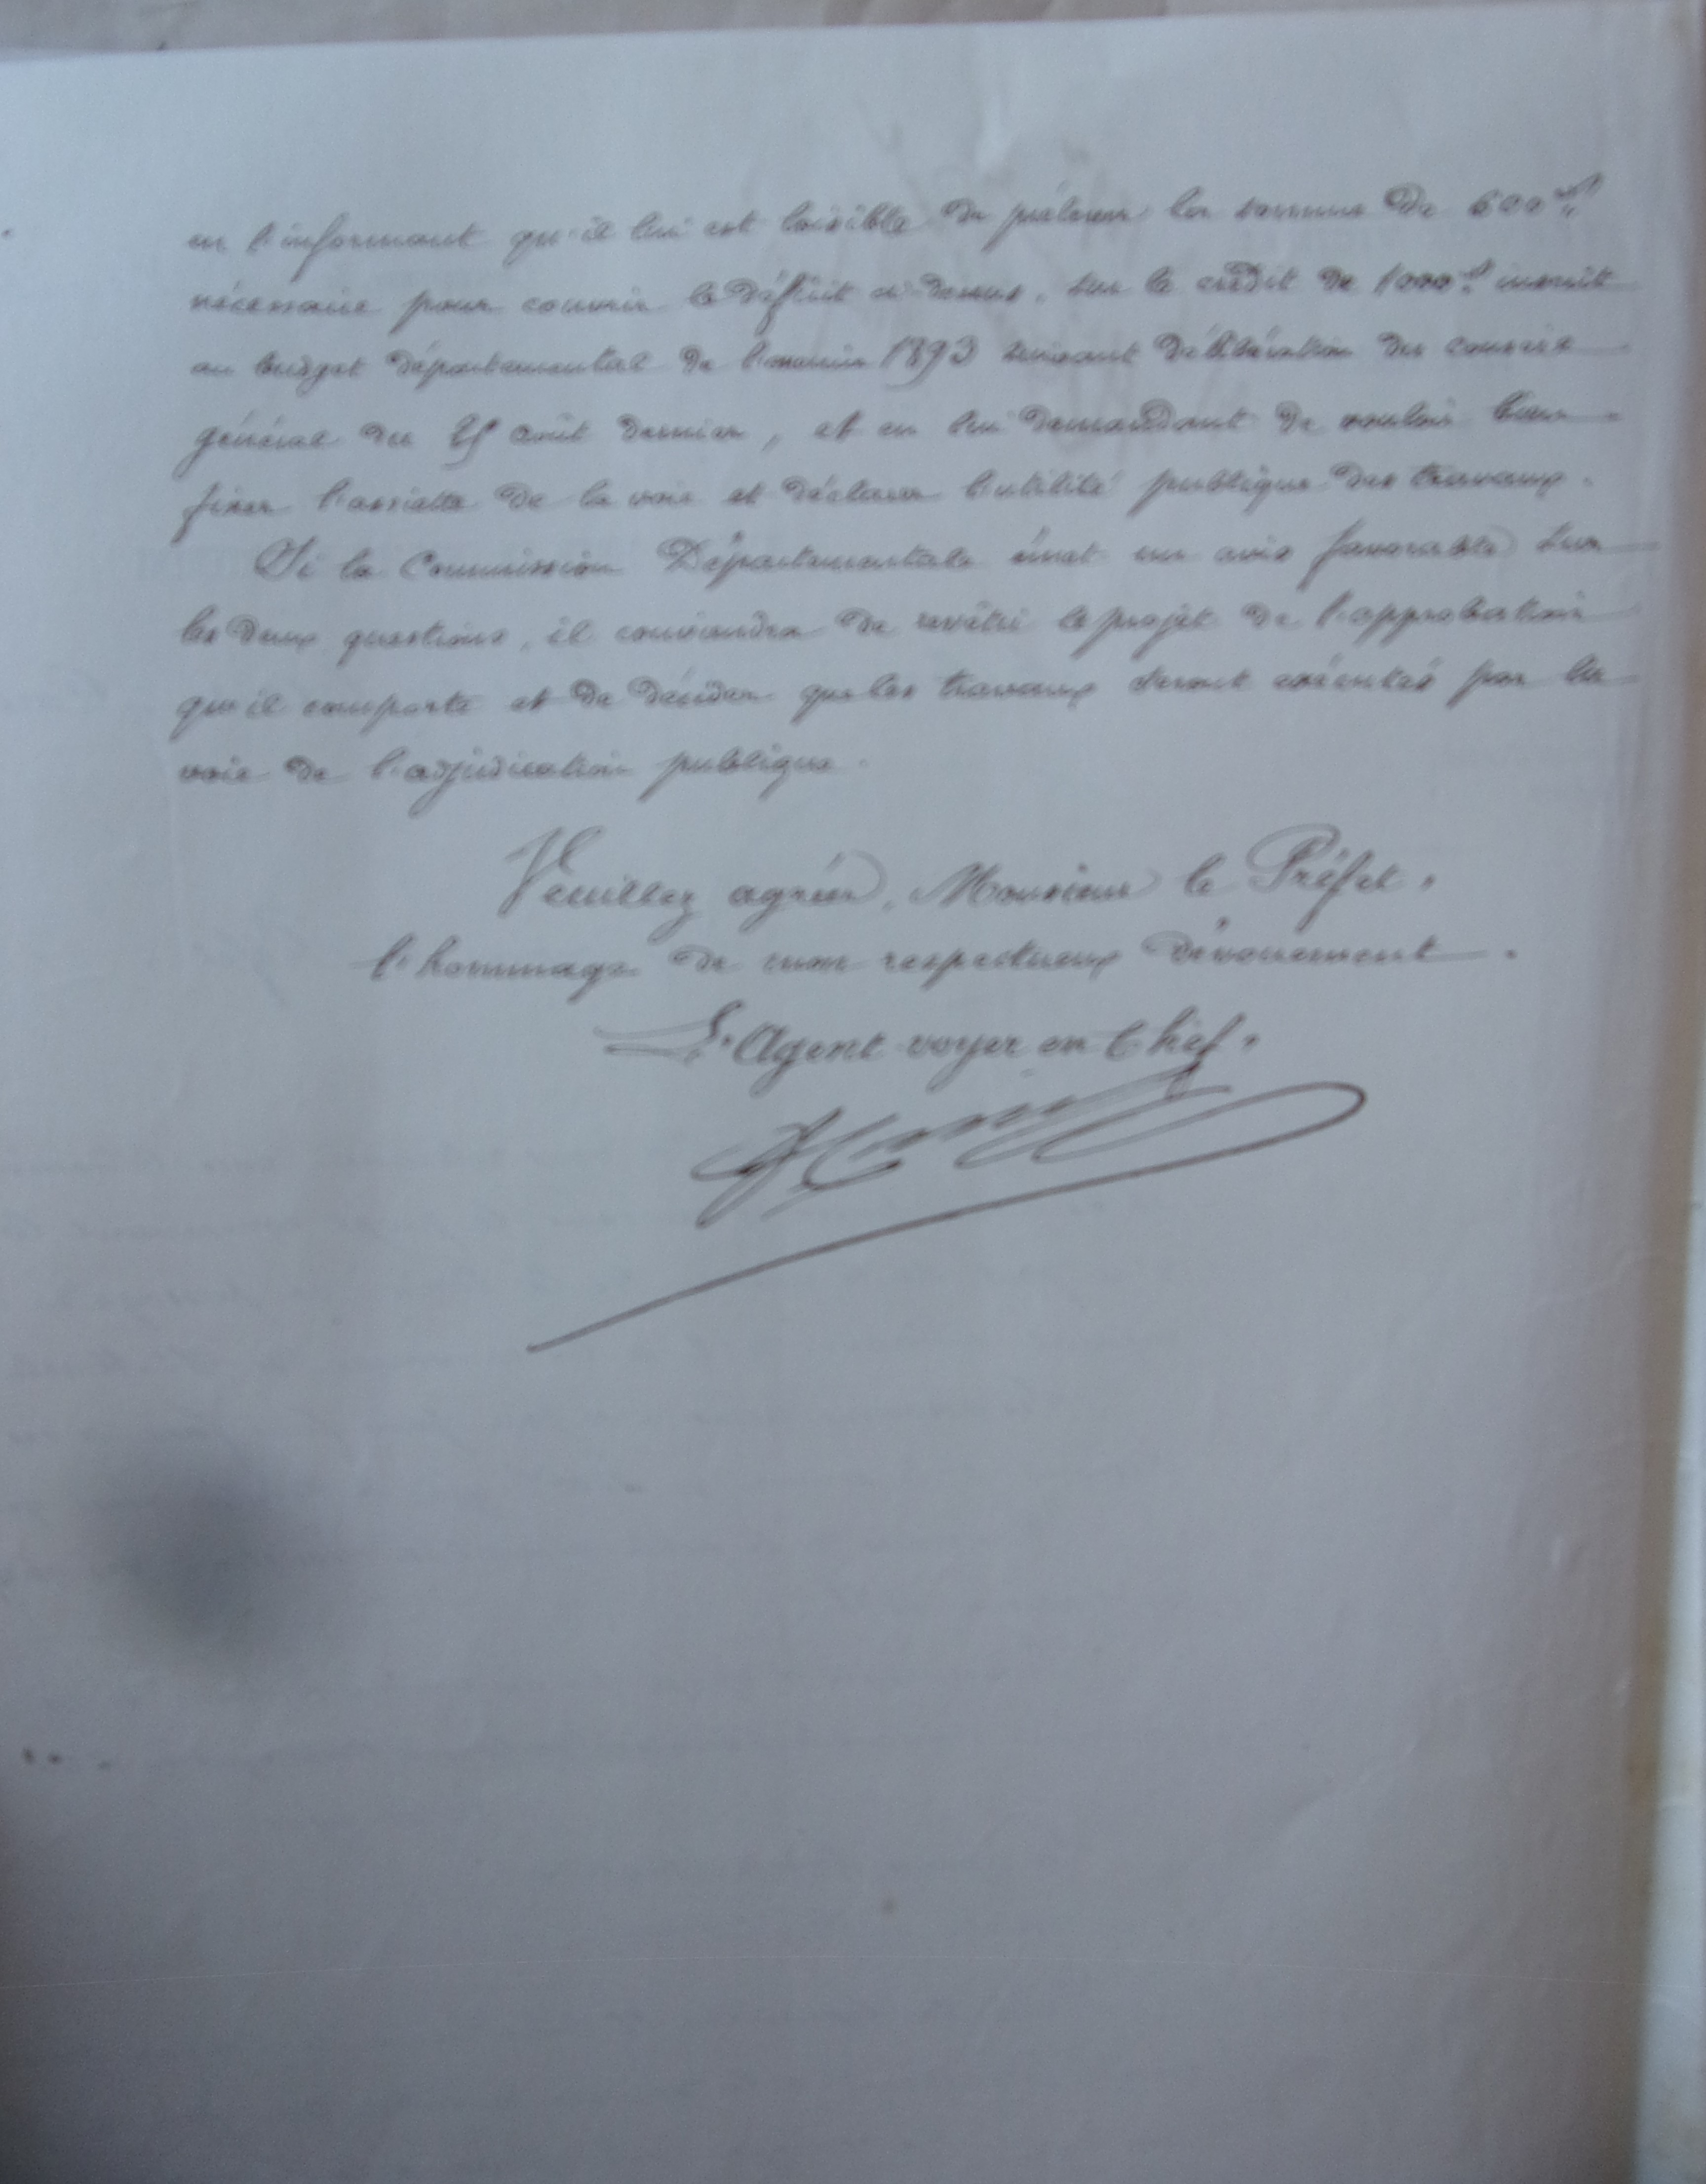 en l'informant qu'il lui est loisible de prélever la somme de 600 frs
nécessaire pour couvrir le déficit ci-dessus, sur le crédit de 1000 frs inscrit
au budget départemental de l'exercice 1893 suivant délibération du conseil
général du août dernier, et en lui demandant de vouloir bien
fixer l'assiette de la voie et déclarer l'utilité publique des travaux.
Si la Commission Départementale émet un avis favorable sur
les deux questions, il conviendra de revêtir le projet de l'approbation
qu'il comporte et de décider que les travaux seront exécutés par la
voie de l'adjudication publique.
Veuillez agréer, Monsieur le Préfet,
l'hommage de mon respectueux dévouement.
L'Agent voyer en Chef,